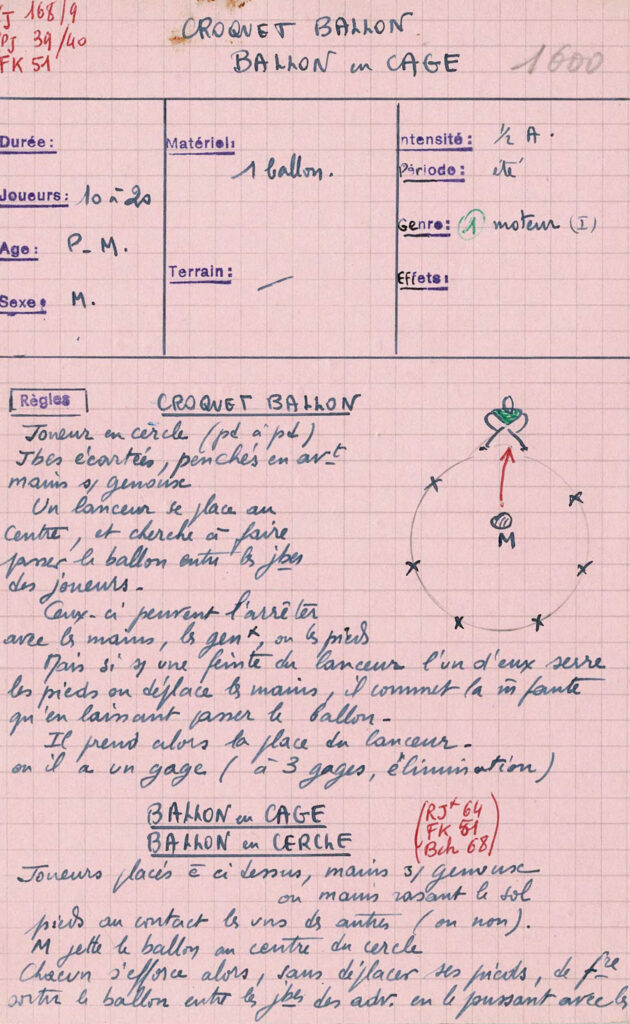 J 168/9
PJ 39/40
FK 51
CROQUET BALLON
BALLON en CAGE
1600
Durée:
Joueurs: 10 à 20
Age: P - M.
Sexe: M.
Matériel:
1 ballon.
Terrain: —
ntensité: ½ A.
Période: été
Genre: 1 moteur (I)
Effets:
Règles
CROQUET BALLON
Joueur en cercle (pd à pd)
Jbes écartées, penchés en avt
mains s/ genoux
Un lanceur se place au
centre, et cherche à faire
passer le ballon entre les jbes
des joueurs.
Ceux-ci peuvent l'arrêter
avec les mains, les genx, ou les pieds
Mais si s/ une feinte du lanceur l'un d'eux serre
les pieds ou déplace les mains, il commet la m̄ faute
qu'en laissant passer le ballon.
Il prend alors la place du lanceur.
ou il a un gage (à 3 gages, élimination)
M
BALLON en CAGE
BALLON en CERCLE
(RJx 64
FK 51
Bch 68)
Joueurs placés c̄ ci dessus, mains s/ genoux
ou mains rasant le sol
pieds au contact les uns des autres (ou non).
M jette le ballon au centre du cercle
Chacun s'efforce alors, sans déplacer ses pieds, de fre
sortir le ballon entre les jbes des adv. en le poussant avec les